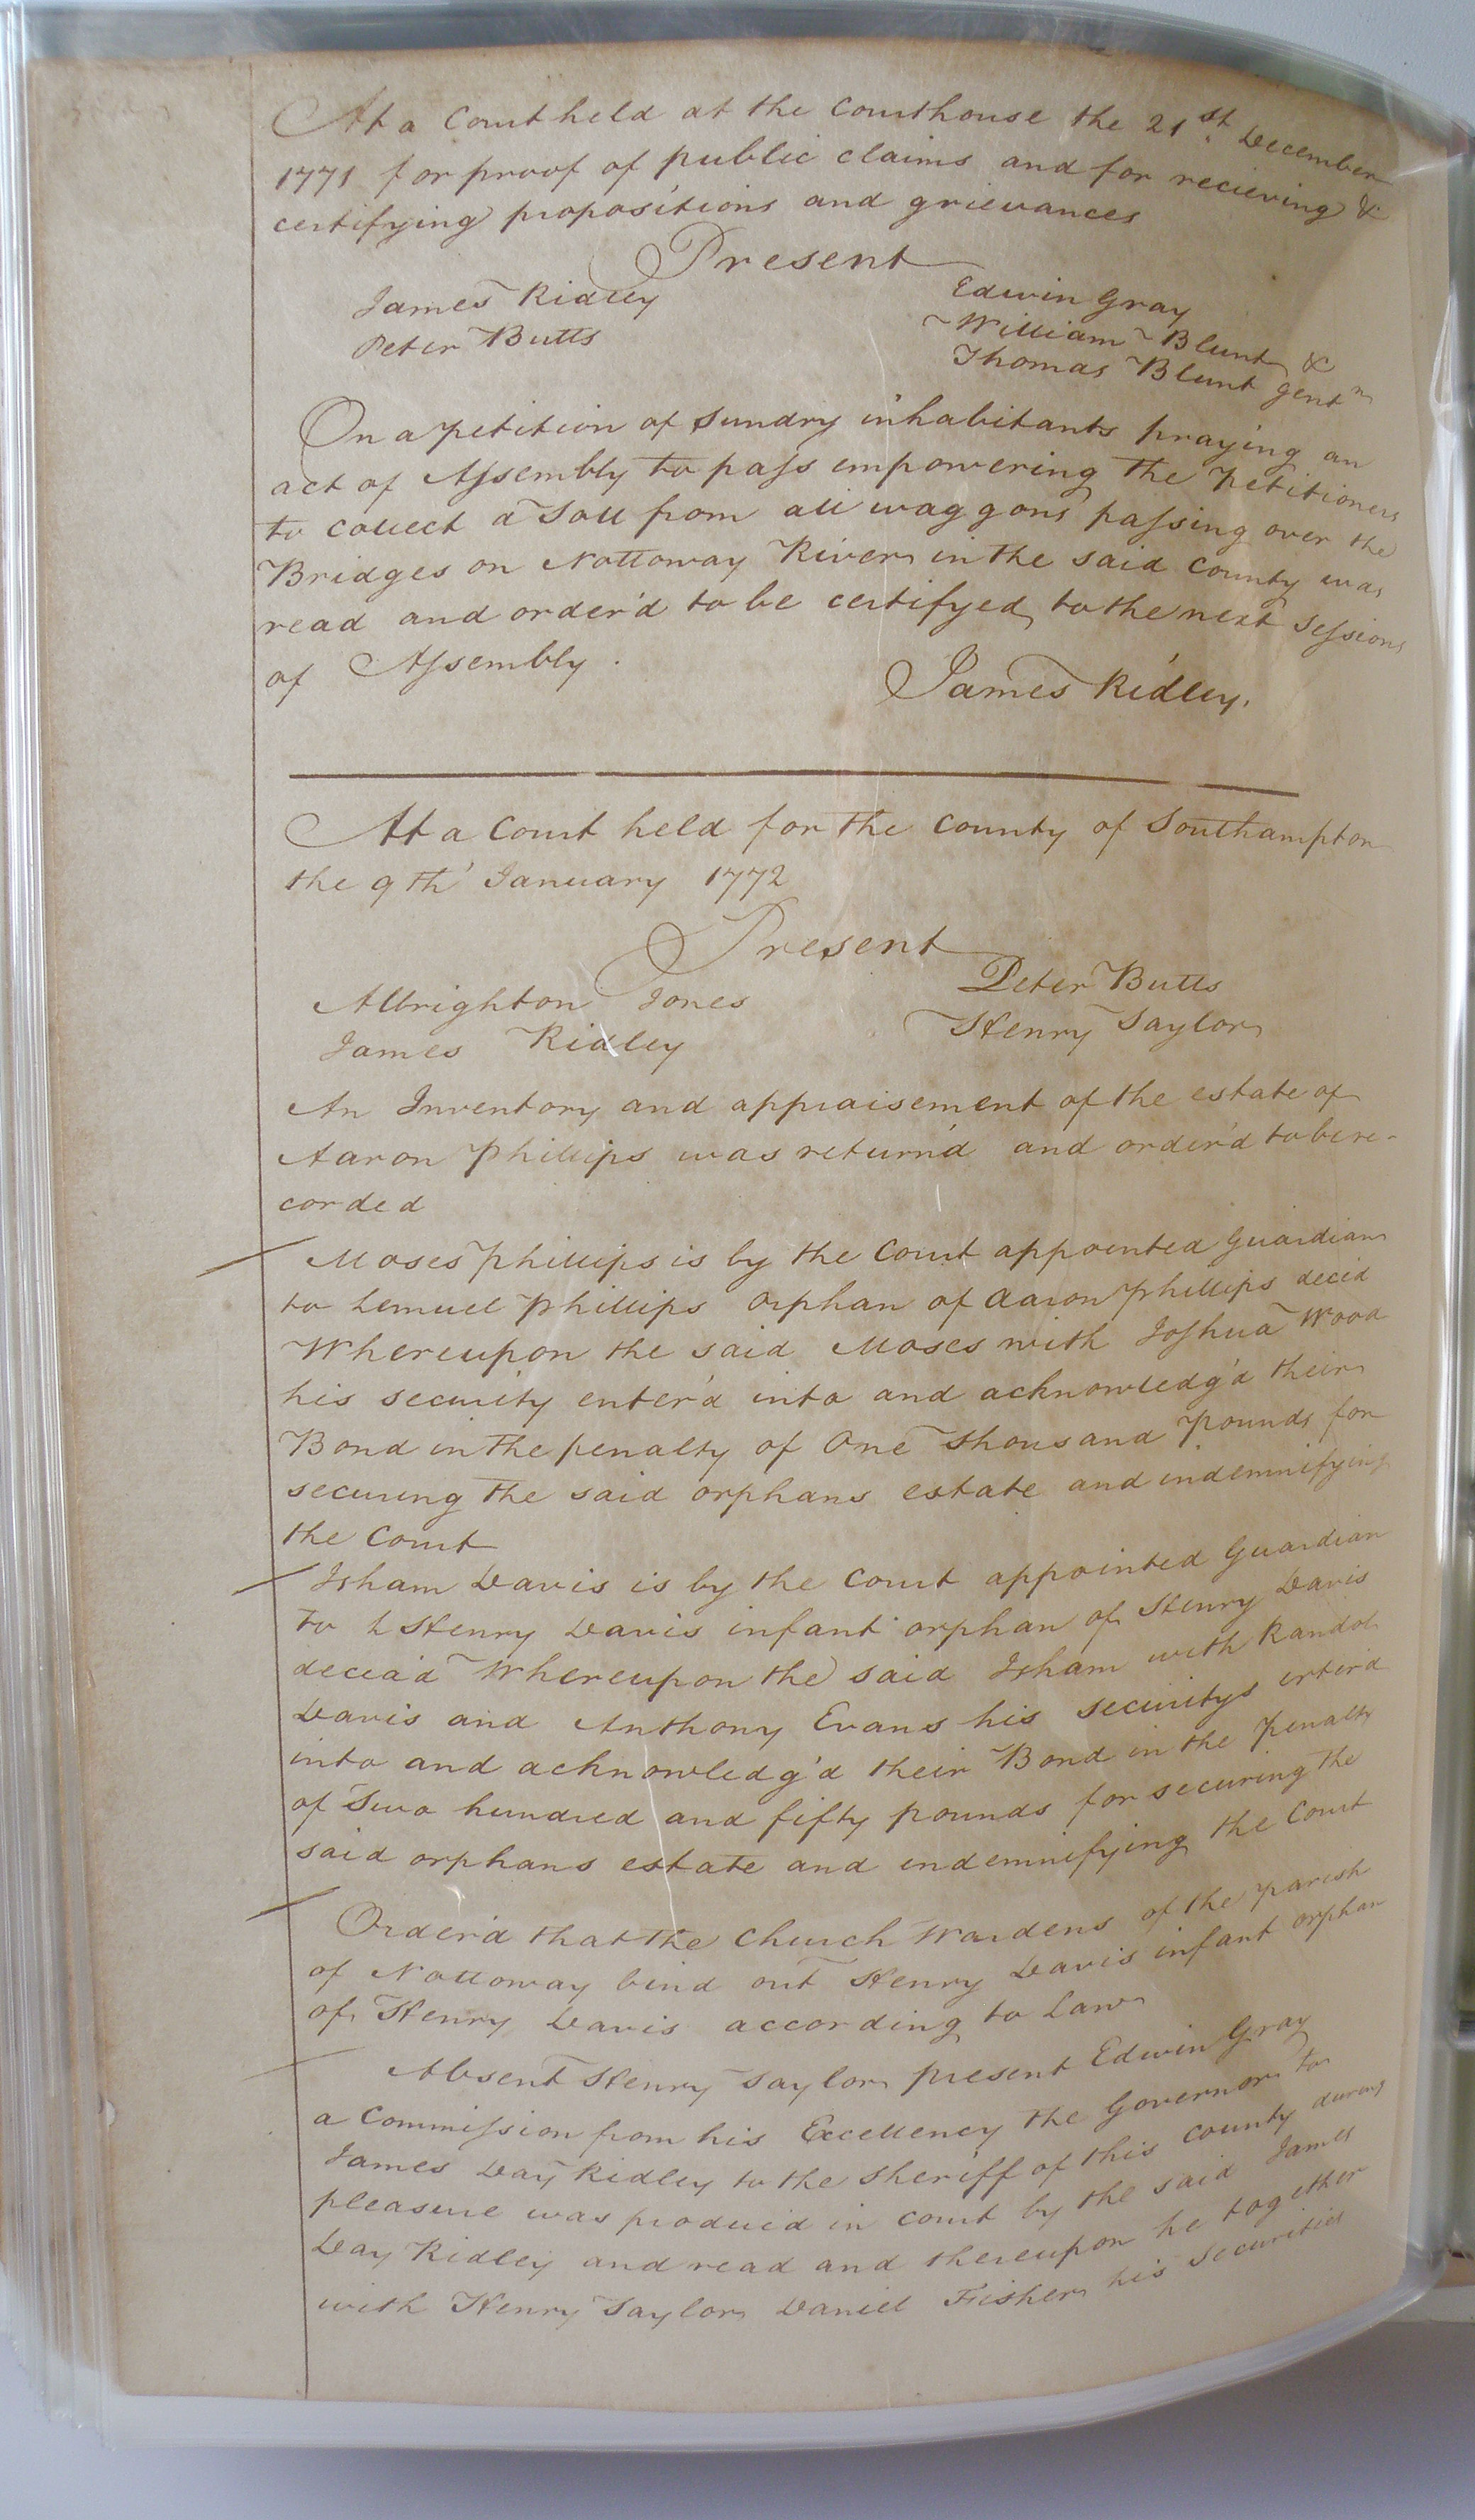 At a Court held at the Courthouse the 21st. December
1771 for proof of public claims and for recieving &
certifying propositions and grievances
Present
James Ridley
Peter Butts
Edwin Gray
William Blunt &
Thomas Blunt gentn
On a petition of Sundry inhabitants praying an
act of Assembly to pass empowering the Petitioners
to collect a Toll from all waggons passing over the
Bridges on Nottoway River in the said County was
read and order'd to be certifyed to the next Sessions
of Assembly.
James Ridley.
At a Court held for the County of Southampton
the 9th January 1772
Present
Albrighton Jones
James Ridley
Peter Butts
Henry Taylor
An Inventory and appraisement of the estate of
Aaron Phillips was return'd and order'd to be re-
corded
Moses Phillips is by the Court appointed Guardian
to Lemuel Phillips Orphan of Aaron Phillips deced
Whereupon the said Moses with Joshua Wood
his security enter'd into and acknowledg'd their
Bond in the penalty of One Thousand Pounds for
securing the said orphans estate and indemnifying
the Court
Isham Davis is by the Court appointed Guardian
to Henry Davis infant orphan of Henry Davis
decea'd Whereupon the said Isham with Randol
Davis and Anthony Evans his securitys enter'd
into and acknowledg'd their Bond in the Penalty
of Two hundred and fifty pounds for securing the
said orphans estate and indemnifying the Court
Order'd that the Church Wardens of the parish
of Nottoway bind out Henry Davis infant orphan
of Henry Davis according to Law
Absent Henry Taylor present Edwin Gray
a Commission from his Excellency the Governor to
James Day Ridley to the Sheriff of this County during
pleasure was produced in Court by the said James
Day Ridley and read and thereupon he together
with Henry Taylor Daniel Fisher his Securities